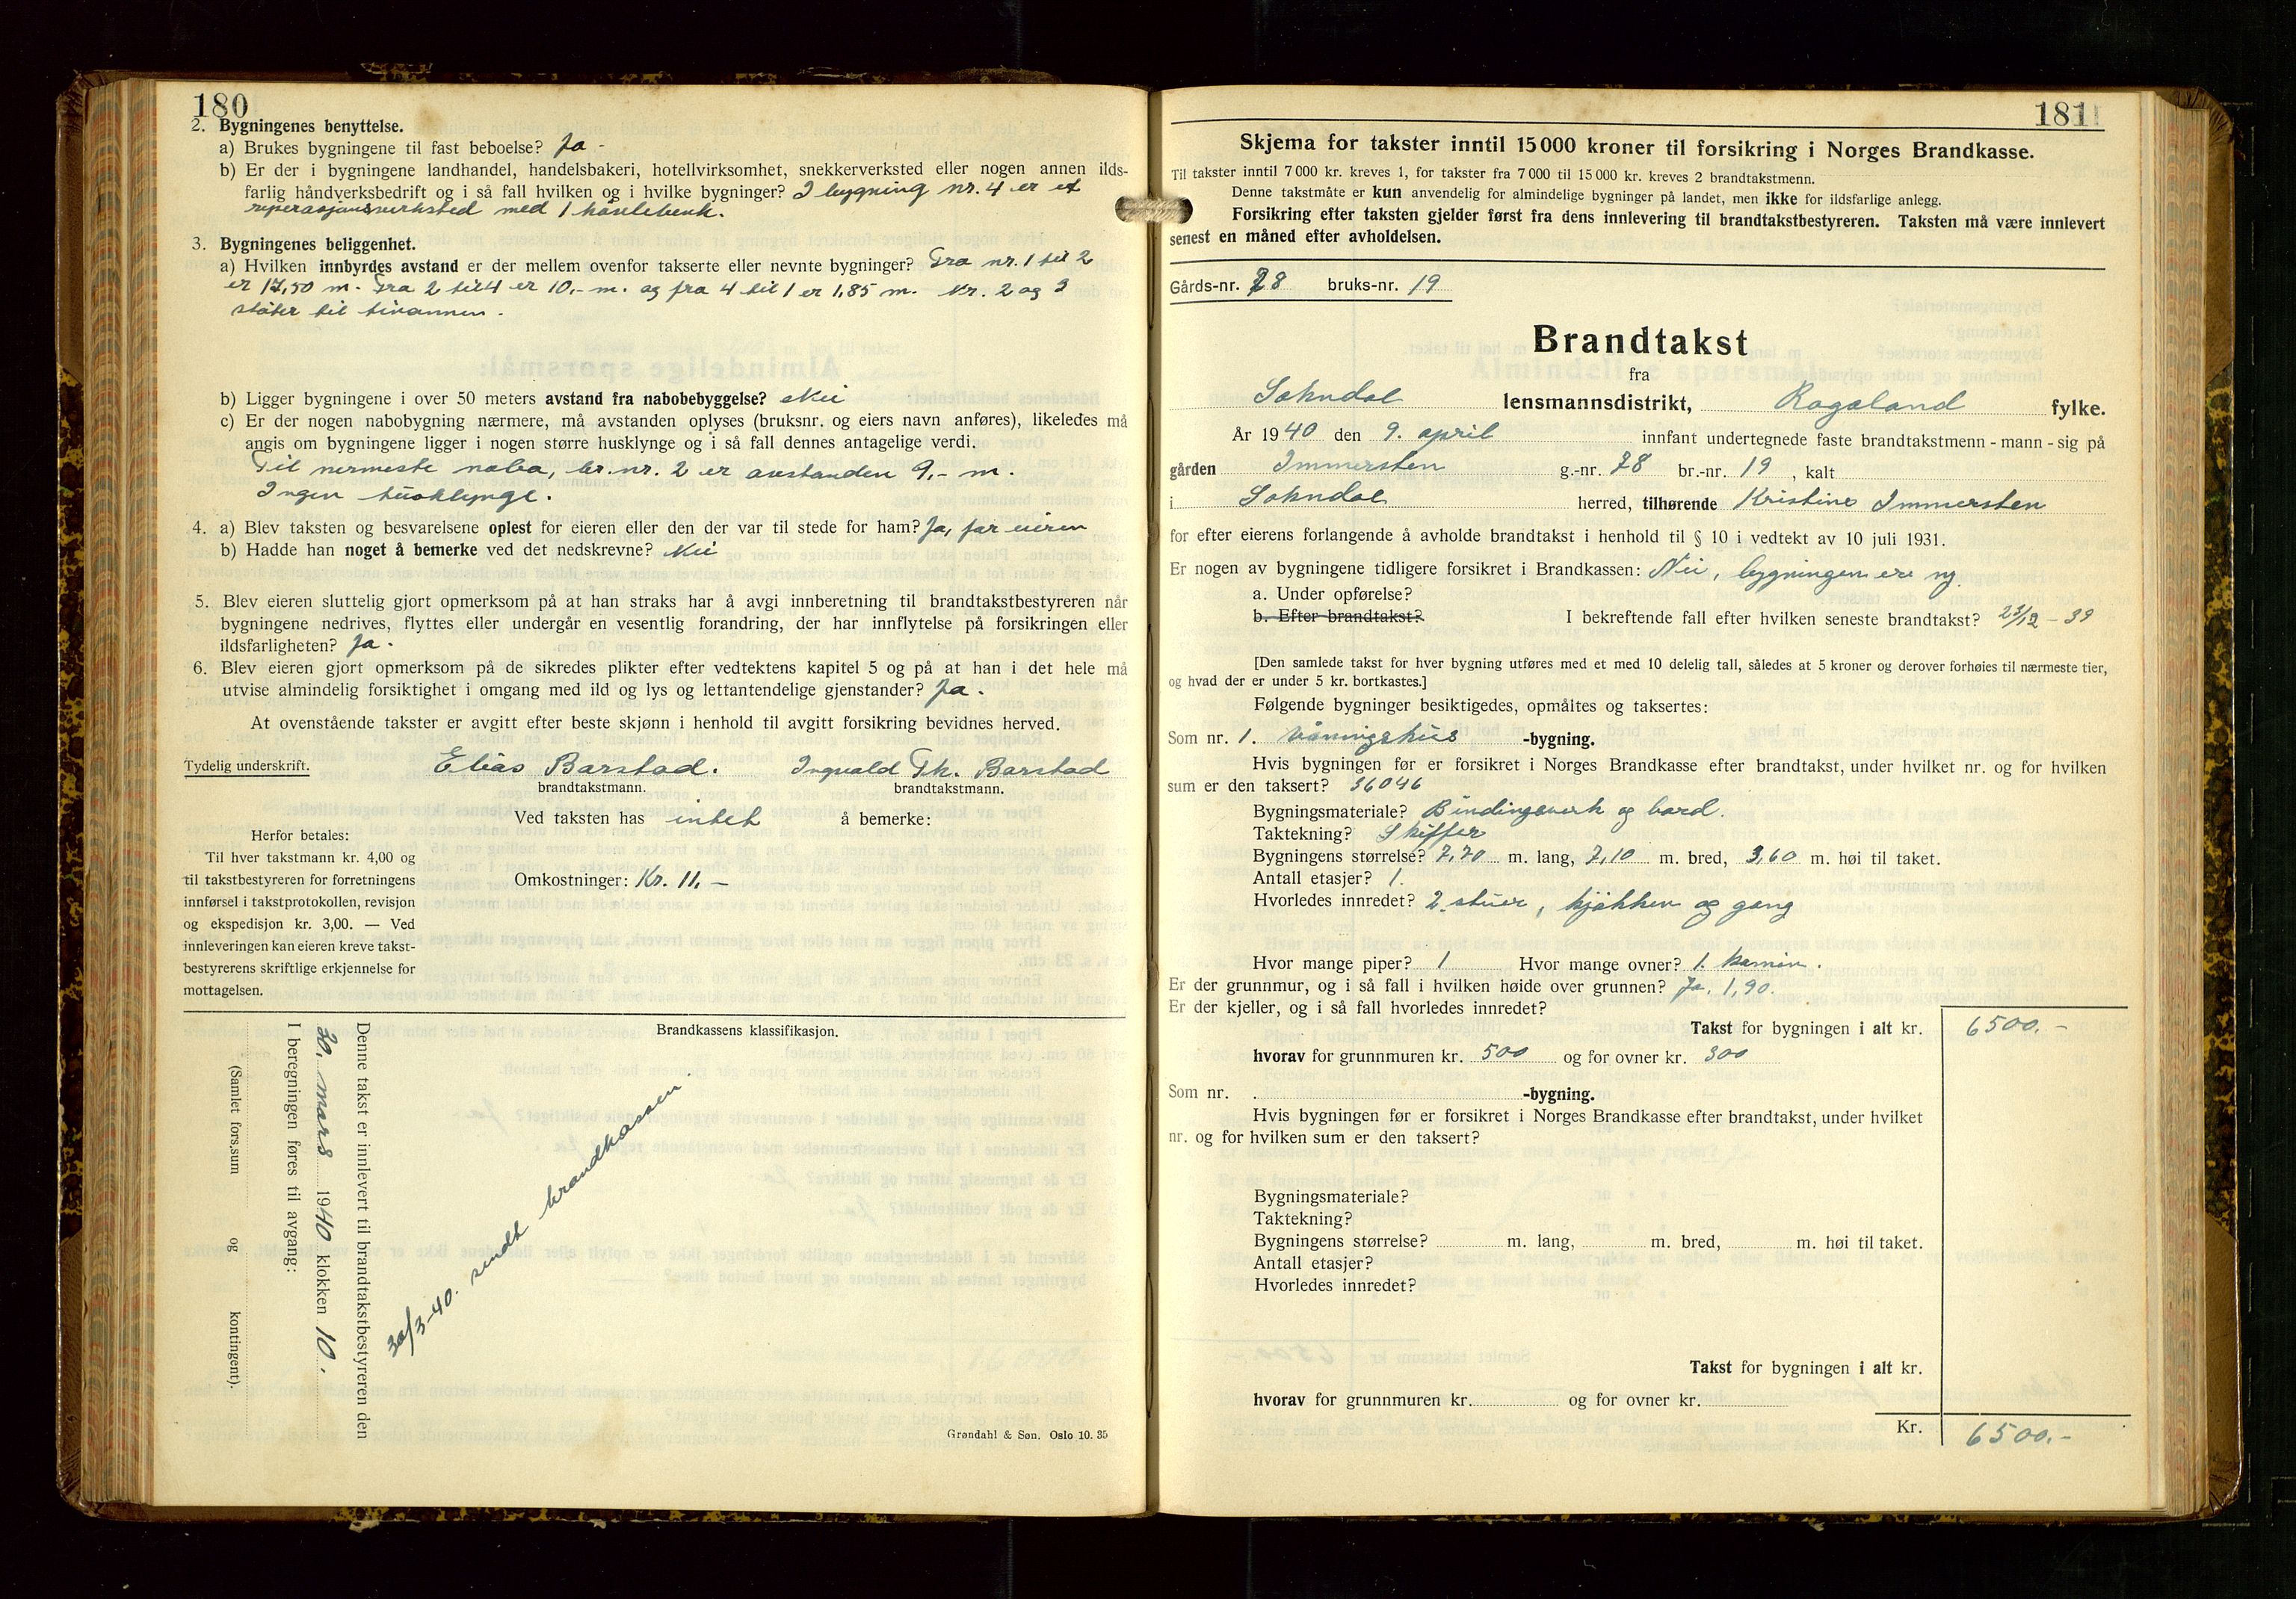 180
2. Bygningenes benyttelse.
a) Brukes bygningene til fast beboelse? Ja -
b) Er der i bygningene landhandel, handelsbakeri, hotellvirksomhet, snekkerverksted eller nogen annen ilds-
farlig håndverksbedrift og i så fall hvilken og i hvilke bygninger? I bygning nr. 4 er et
reperasjonsverksted med 1 høvlebenk.
3. Bygningenes beliggenhet.
a) Hvilken innbyrdes avstand er der mellem ovenfor takserte eller nevnte bygninger? Fra nr. 1 til 2
er 17,50 m. Fra 2 til 4 er 10,- m. og fra 4 til 1 er 1,85 m. Nr. 2 og 3
støter til hinannen.
b) Ligger bygningene i over 50 meters avstand fra nabobebyggelse? Nei
c) Er der nogen nabobygning nærmere, må avstanden oplyses (bruksnr. og eiers navn anføres), likeledes må
angis om bygningene ligger i nogen større husklynge og i så fall dennes antagelige verdi.
Til nermeste nabo, br. nr. 2 er avstanden 9,- m.
Ingen husklynge.
4. a) Blev taksten og besvarelsene oplest for eieren eller den der var til stede for ham? Ja, for eieren
b) Hadde han noget å bemerke ved det nedskrevne? Nei
5. Blev eieren sluttelig gjort opmerksom på at han straks har å avgi innberetning til brandtakstbestyreren når
bygningene nedrives, flyttes eller undergår en vesentlig forandring, der har innflytelse på forsikringen eller
ildsfarligheten? Ja.
6. Blev eieren gjort opmerksom på de sikredes plikter efter vedtektens kapitel 5 og på at han i det hele må
utvise almindelig forsiktighet i omgang med ild og lys og lettantendelige gjenstander? Ja.
At ovenstående takster er avgitt efter beste skjønn i henhold til avgitt forsikring bevidnes herved.
Tydelig underskrift. Elias Barstad. Ingvald Th. Barstad
brandtakstmann. brandtakstmann.
Ved taksten has intet å bemerke:
Herfor betales:
Til hver takstmann kr. 4,00 og
til takstbestyreren for forretningens
innførsel i takstprotokollen, revisjon
og ekspedisjon kr. 3,00. — Ved
innleveringen kan eieren kreve takst-
bestyrerens skriftlige erkjennelse for
mottagelsen.
Omkostninger: Kr. 11,-
Brandkassens klassifikasjon.
Denne takst er innlevert til brandtakstbestyreren den
30. mars 1940 klokken 10.
I beregningen føres til avgang:
(Samlet fors.sum og kontingent).
30/3-40. sendt brandkassen.
Grøndahl & Søn, Oslo 10. 35
181
Skjema for takster inntil 15 000 kroner til forsikring i Norges Brandkasse.
Til takster inntil 7 000 kr. kreves 1, for takster fra 7 000 til 15 000 kr. kreves 2 brandtakstmenn.
Denne takstmåte er kun anvendelig for almindelige bygninger på landet, men ikke for ildsfarlige anlegg.
Forsikring efter taksten gjelder først fra dens innlevering til brandtakstbestyreren. Taksten må være innlevert
senest en måned efter avholdelsen.
Gårds-nr. 78 bruks-nr. 19
Brandtakst
fra
Sokndal lensmannsdistrikt, Rogaland fylke.
År 1940 den 9. april innfant undertegnede faste brandtakstmenn - mann - sig på
gården Immersten g.-nr. 78 br.-nr. 19, kalt
i Sokndal herred, tilhørende Kristine Immersten
for efter eierens forlangende å avholde brandtakst i henhold til § 10 i vedtekt av 10 juli 1931.
Er nogen av bygningene tidligere forsikret i Brandkassen: Nei, bygningen er ny.
a. Under opførelse?
b. Efter brandtakst? I bekreftende fall efter hvilken seneste brandtakst? 23/12 - 39
[Den samlede takst for hver bygning utføres med et med 10 delelig tall, således at 5 kroner og derover forhøies til nærmeste tier,
og hvad der er under 5 kr. bortkastes.]
Følgende bygninger besiktigedes, opmåltes og taksertes:
Som nr. 1. våningshus -bygning.
Hvis bygningen før er forsikret i Norges Brandkasse efter brandtakst, under hvilket nr. og for hvilken
sum er den taksert? 36046
Bygningsmateriale? Bindingsverk og bord.
Taktekning? Skiffer
Bygningens størrelse? 7,70 m. lang, 7,10 m. bred, 3,60 m. høi til taket.
Antall etasjer? 1.
Hvorledes innredet? 2 stuer, kjøkken og gang
Hvor mange piper? 1 Hvor mange ovner? 1 kamin.
Er der grunnmur, og i så fall i hvilken høide over grunnen? Ja. 1,90.
Er der kjeller, og i så fall hvorledes innredet?
Takst for bygningen i alt kr. 6500.-
hvorav for grunnmuren kr. 500 og for ovner kr. 300
Som nr. -bygning.
Hvis bygningen før er forsikret i Norges Brandkasse efter brandtakst, under hvilket
nr. og for hvilken sum er den taksert?
Bygningsmateriale?
Taktekning?
Bygningens størrelse? m. lang, m. bred, m. høi til taket.
Antall etasjer?
Hvorledes innredet?
Takst for bygningen i alt kr.
hvorav for grunnmuren kr. og for ovner kr.
Kr. 6500.-